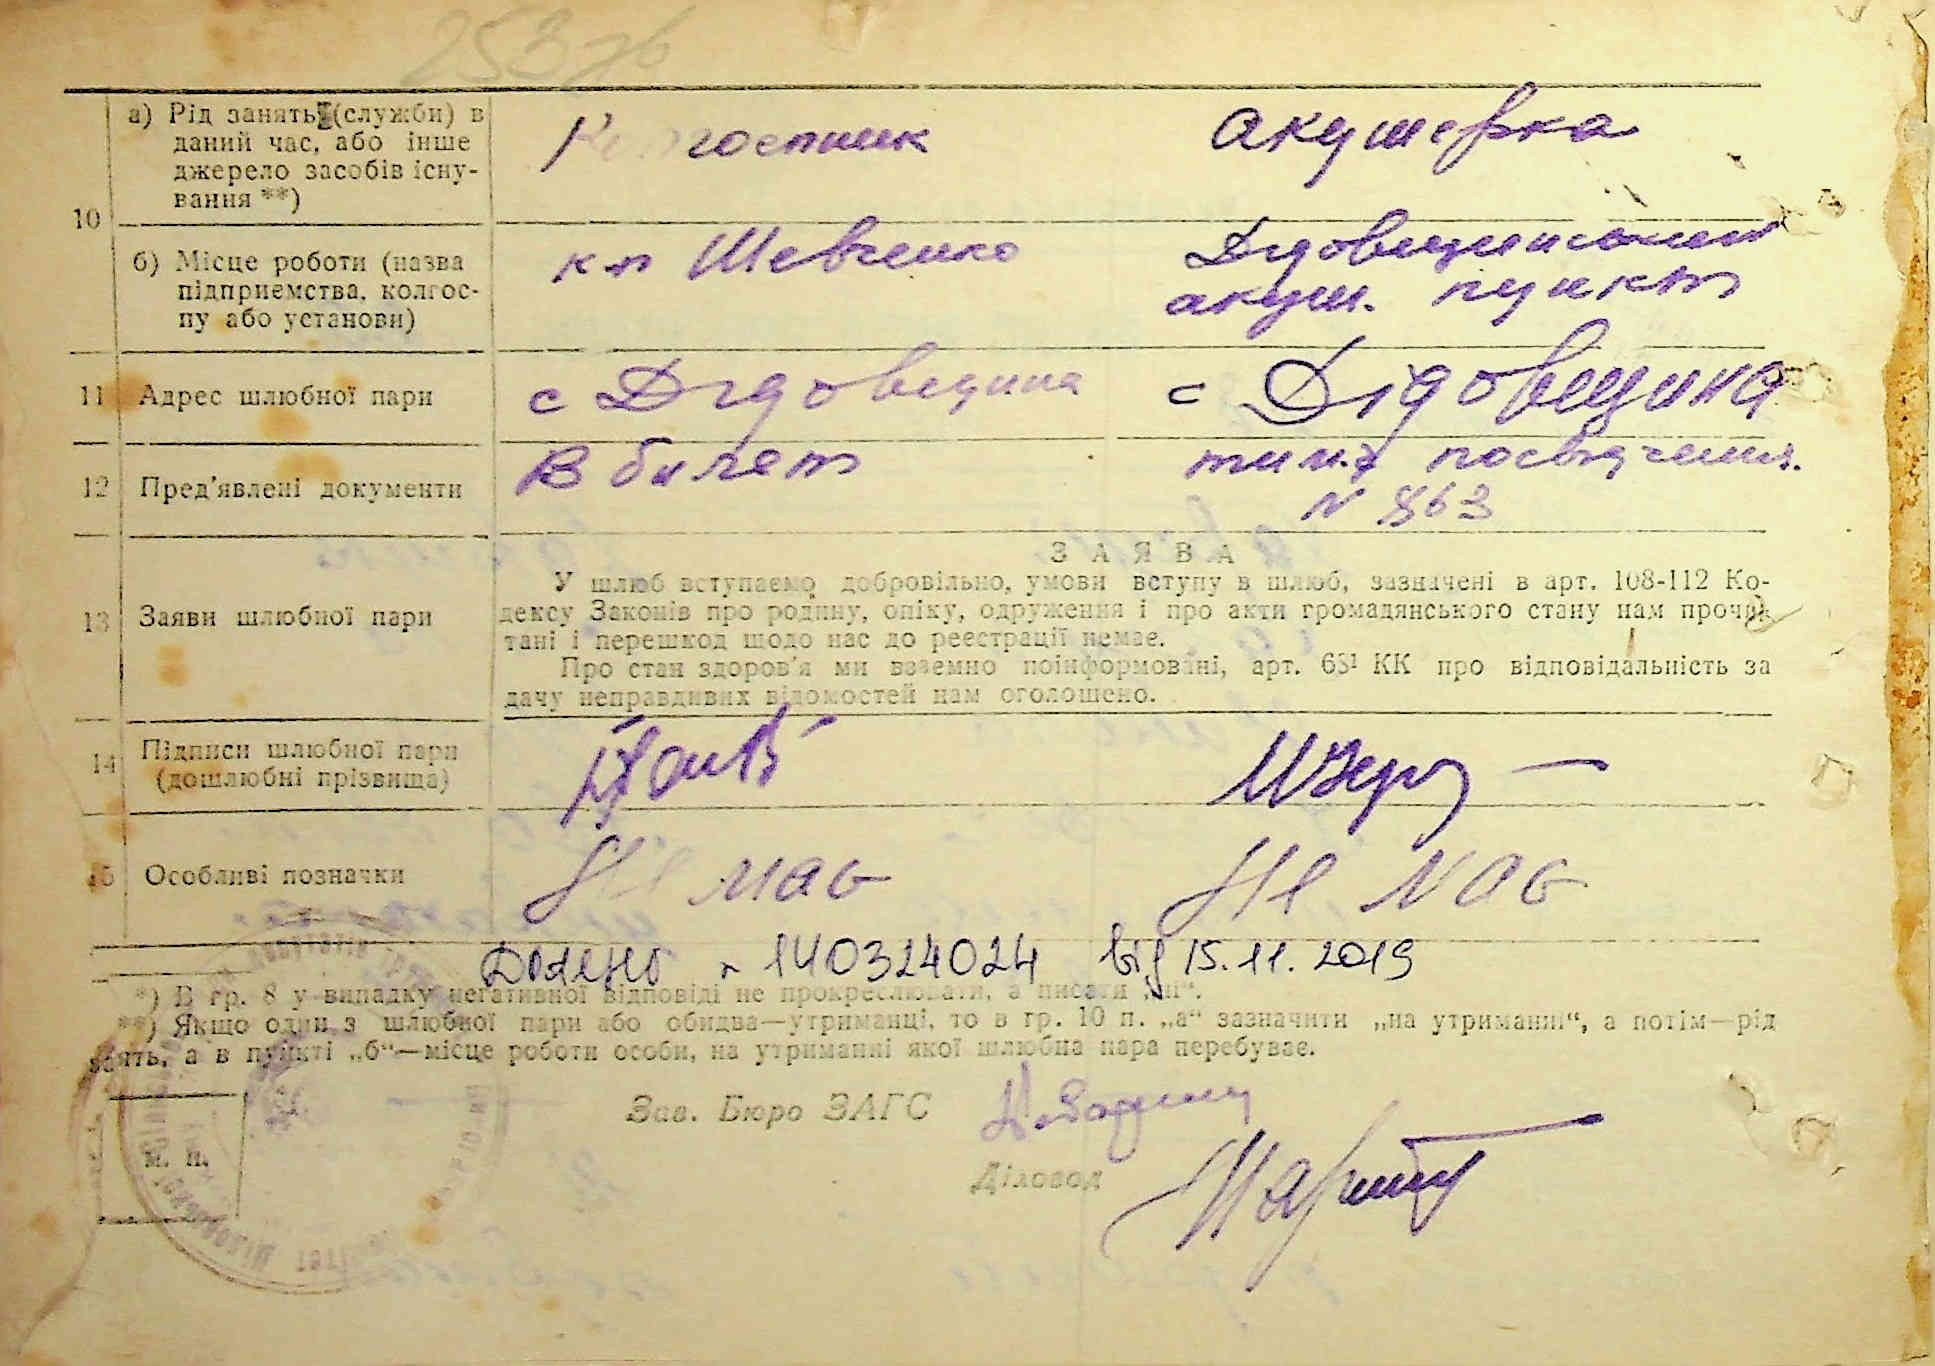 253 зв
а) Рід занять (служби) в
даний час, або інше
джерело засобів існу-
вання **)
Колгоспник
Акушерка
10
б) Місце роботи (назва
підприємства, колгос-
пу або установи)
к-п Шевченко
Дідовщинський
акуш. пункт
11 Адрес шлюбної пари
с Дідовщина
с Дідовщина
12 Пред'явлені документи
В билет
тим. посвідчення.
N 863
13 Заяви шлюбної пари
ЗАЯВА
У шлюб вступаємо добровільно, умови вступу в шлюб, зазначені в арт. 108-112 Ко-
дексу Законів про родину, опіку, одруження і про акти громадянського стану нам прочи-
тані і перешкод щодо нас до реєстрації немає.
Про стан здоров'я ми взаємно поінформовані, арт. 68¹ КК про відповідальність за
дачу неправдивих відомостей нам оголошено.
14 Підписи шлюбної пари
(дошлюбні прізвища)
15 Особливі позначки
Не має
Не має
від 15.11.2019
140324024
*) В гр. 8 у випадку негативної відповіді не прокреслювати, а писати „ні“.
**) Якщо один з шлюбної пари або обидва—утриманці, то в гр. 10 п. „а“ зазначити „на утриманні“, а потім—рід
занять, а в пункті „б“—місце роботи особи, на утриманні якої шлюбна пара перебуває.
Зав. Бюро ЗАГС
М. П.
Діловод